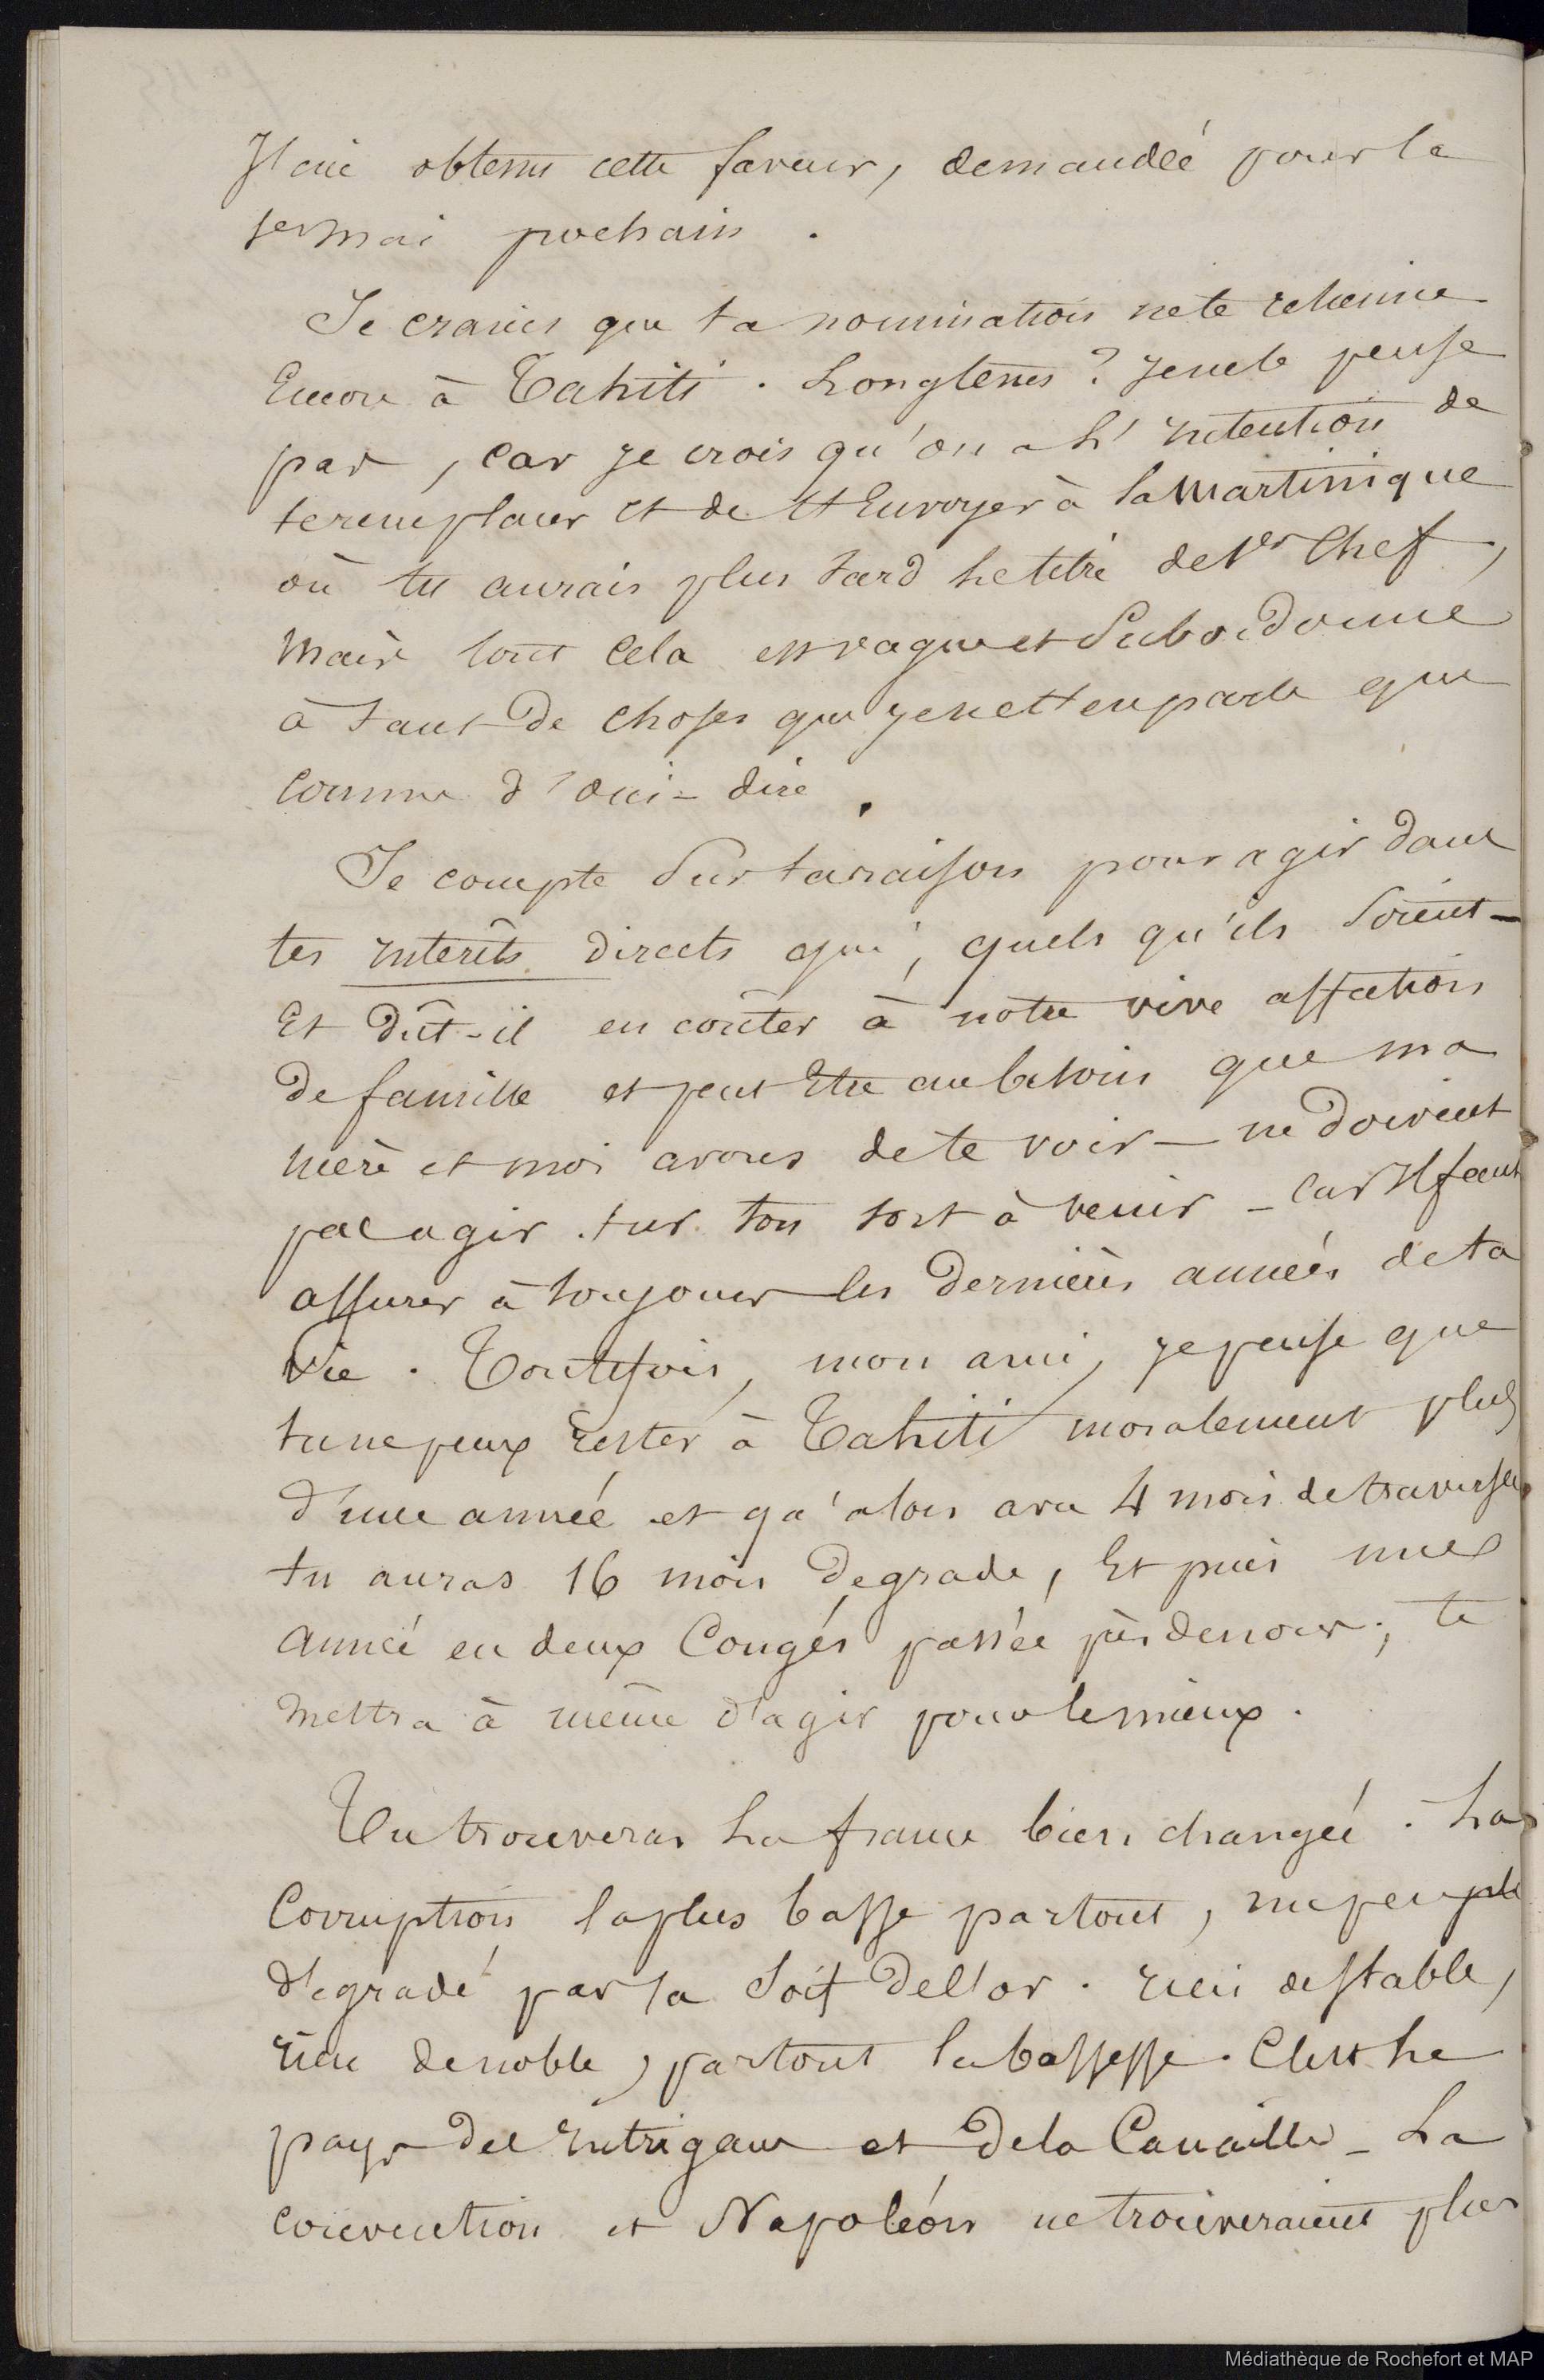 J'aie obtenu cette faveur, demandée pour le
1er mai prochain.
Je crains que ta nomination ne te retienne
Encore à Tahiti. Longtems ? Je ne le pense
pas, car je crois qu'on a L'intention de
te remplacer et de t'Envoyer à la Martinique
où tu aurais plus tard Le titre de 1er Chef,
Mais tout Cela est vague et Subordonné
à tant de choses que je ne t'en parle que
Comme d'oui-dire.
Je compte Sur ta raison pour agir dans
tes intérêts directs qui, quels qu'ils Soient -
Et dût-il en coûter à notre vive affection
De famille et peut Etre au besoin que ma
mère et moi avons de te voir - ne Doivent
pas agir sur ton sort à venir - Car Il faut
assurer à toujours les Dernières années de ta
Vie. Toutefois, mon ami, je pense que
tu ne peux Rester à Tahiti moralement plus
d'une année et qu'alors avec 4 mois de traversée
tu auras 16 mois De grade, Et puis une
Année en deux Congés passée près de nous, te
Mettra à même d'agir pour le mieux.
Tu trouveras La france bien changée. La
Corruption la plus basse partout, un peuple
Dégradé par la Soif De l'or. rien de stable,
rien de noble, partout la bassesse. C'est Le
pays Des Intrigans et De la Canaille - La
Convention et Napoléon ne trouveraient plus
Médiathèque de Rochefort et MAP